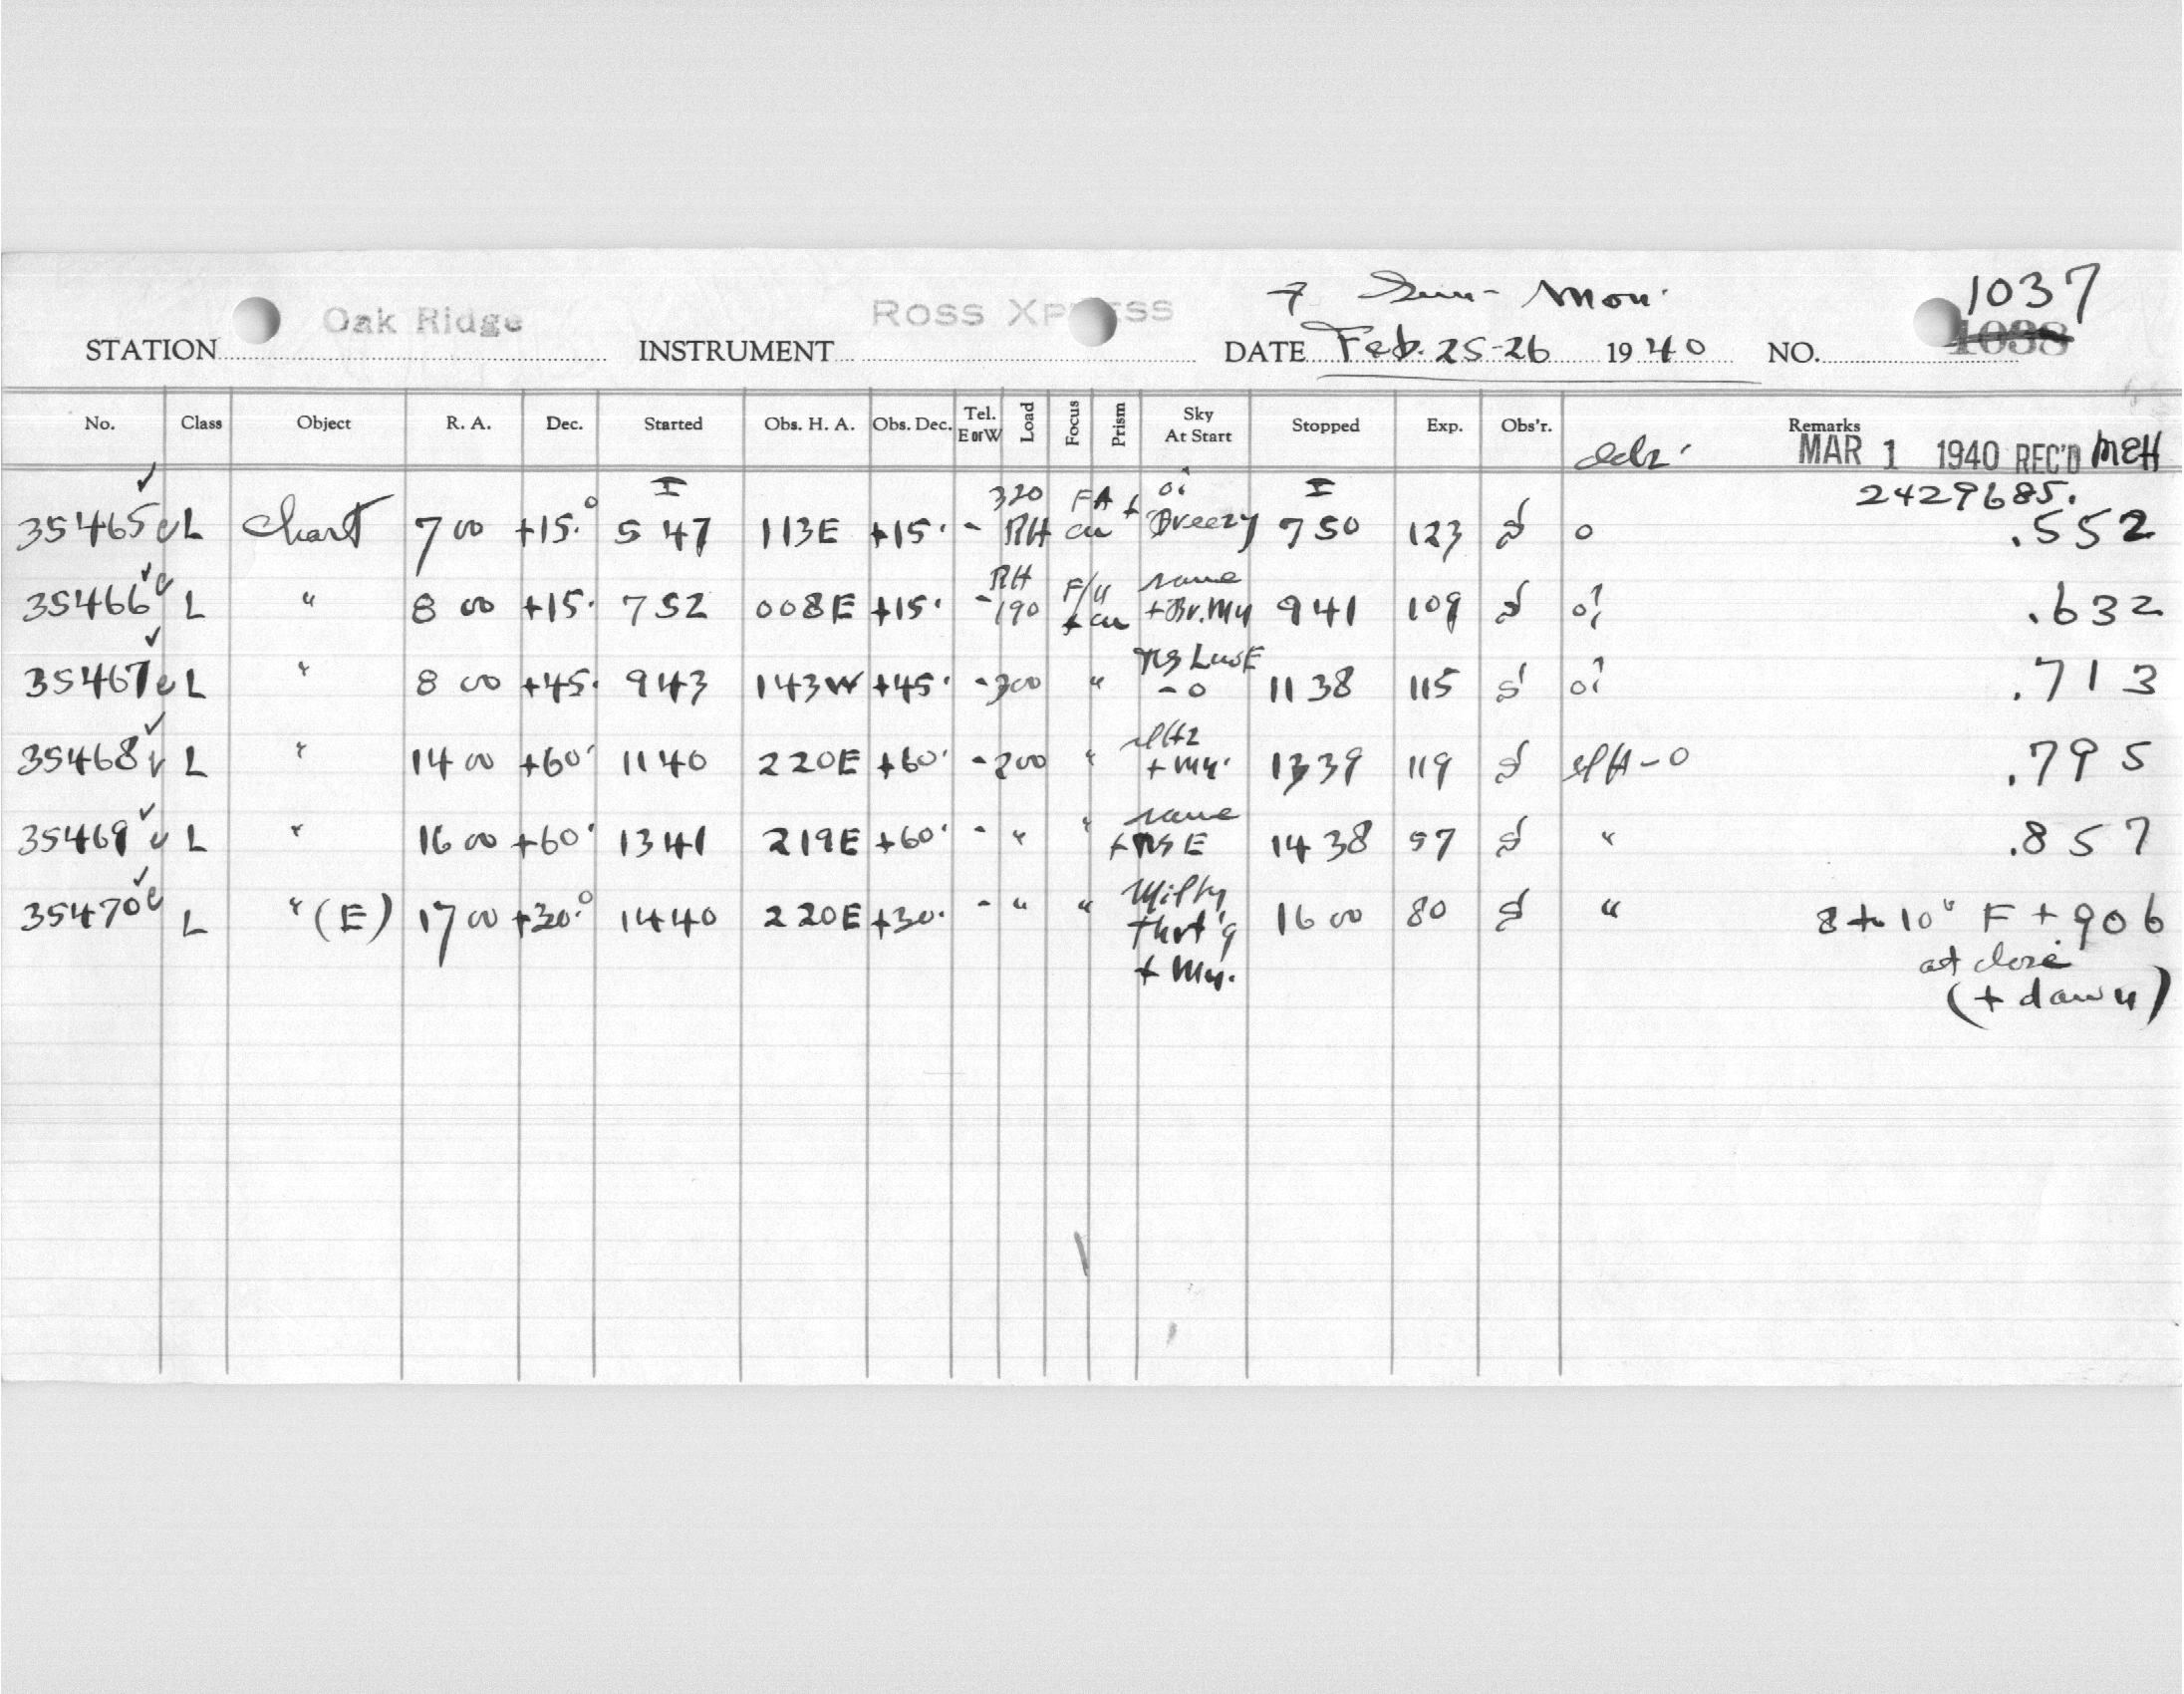 Sun - Mon. 1037
STATION Oak Ridge INSTRUMENT ROSS XPRESS DATE Feb. 25-26 1940 NO. 1038
No. Class Object R. A. Dec. Started Obs. H. A. Obs. Dec. Tel. E or W Load Focus Prism Sky At Start Stopped Exp. Obs'r. Remarks
MAR 1 1940 REC'D MEH
2429685.
35465 L Chart 7 00 +15.° 5 47 113E +15. - 320 RH FA + Breezy 7 50 123 0 .552
35466 L " 8 00 +15. 7 52 008E +15. - RH 190 same + Br. 9 41 109 .632
35467 L " 8 00 +45. 9 43 143W +45. - 300 " - 0 11 38 115 .713
35468 L " 14 00 +60. 11 40 220E +60. - 200 " 13 39 119 .795
35469 L " 16 00 +60. 13 41 219E +60. - " " same + E 14 38 57 " .857
35470 L " (E) 17 00 +30.° 14 40 220E +30. - " " Milky 16 00 80 " 8 to 10" F + 906
at close
(+ dawn)